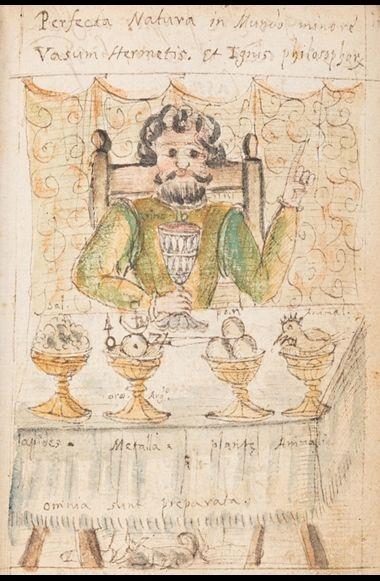 Perfecta Natura in Mundo minore
Vasum Hermetis. Et Ignis philosophor
Sal.
Animal.
oro. Arg.
Lapides. Metalla. plantę Animalia
omnia sunt preparata.